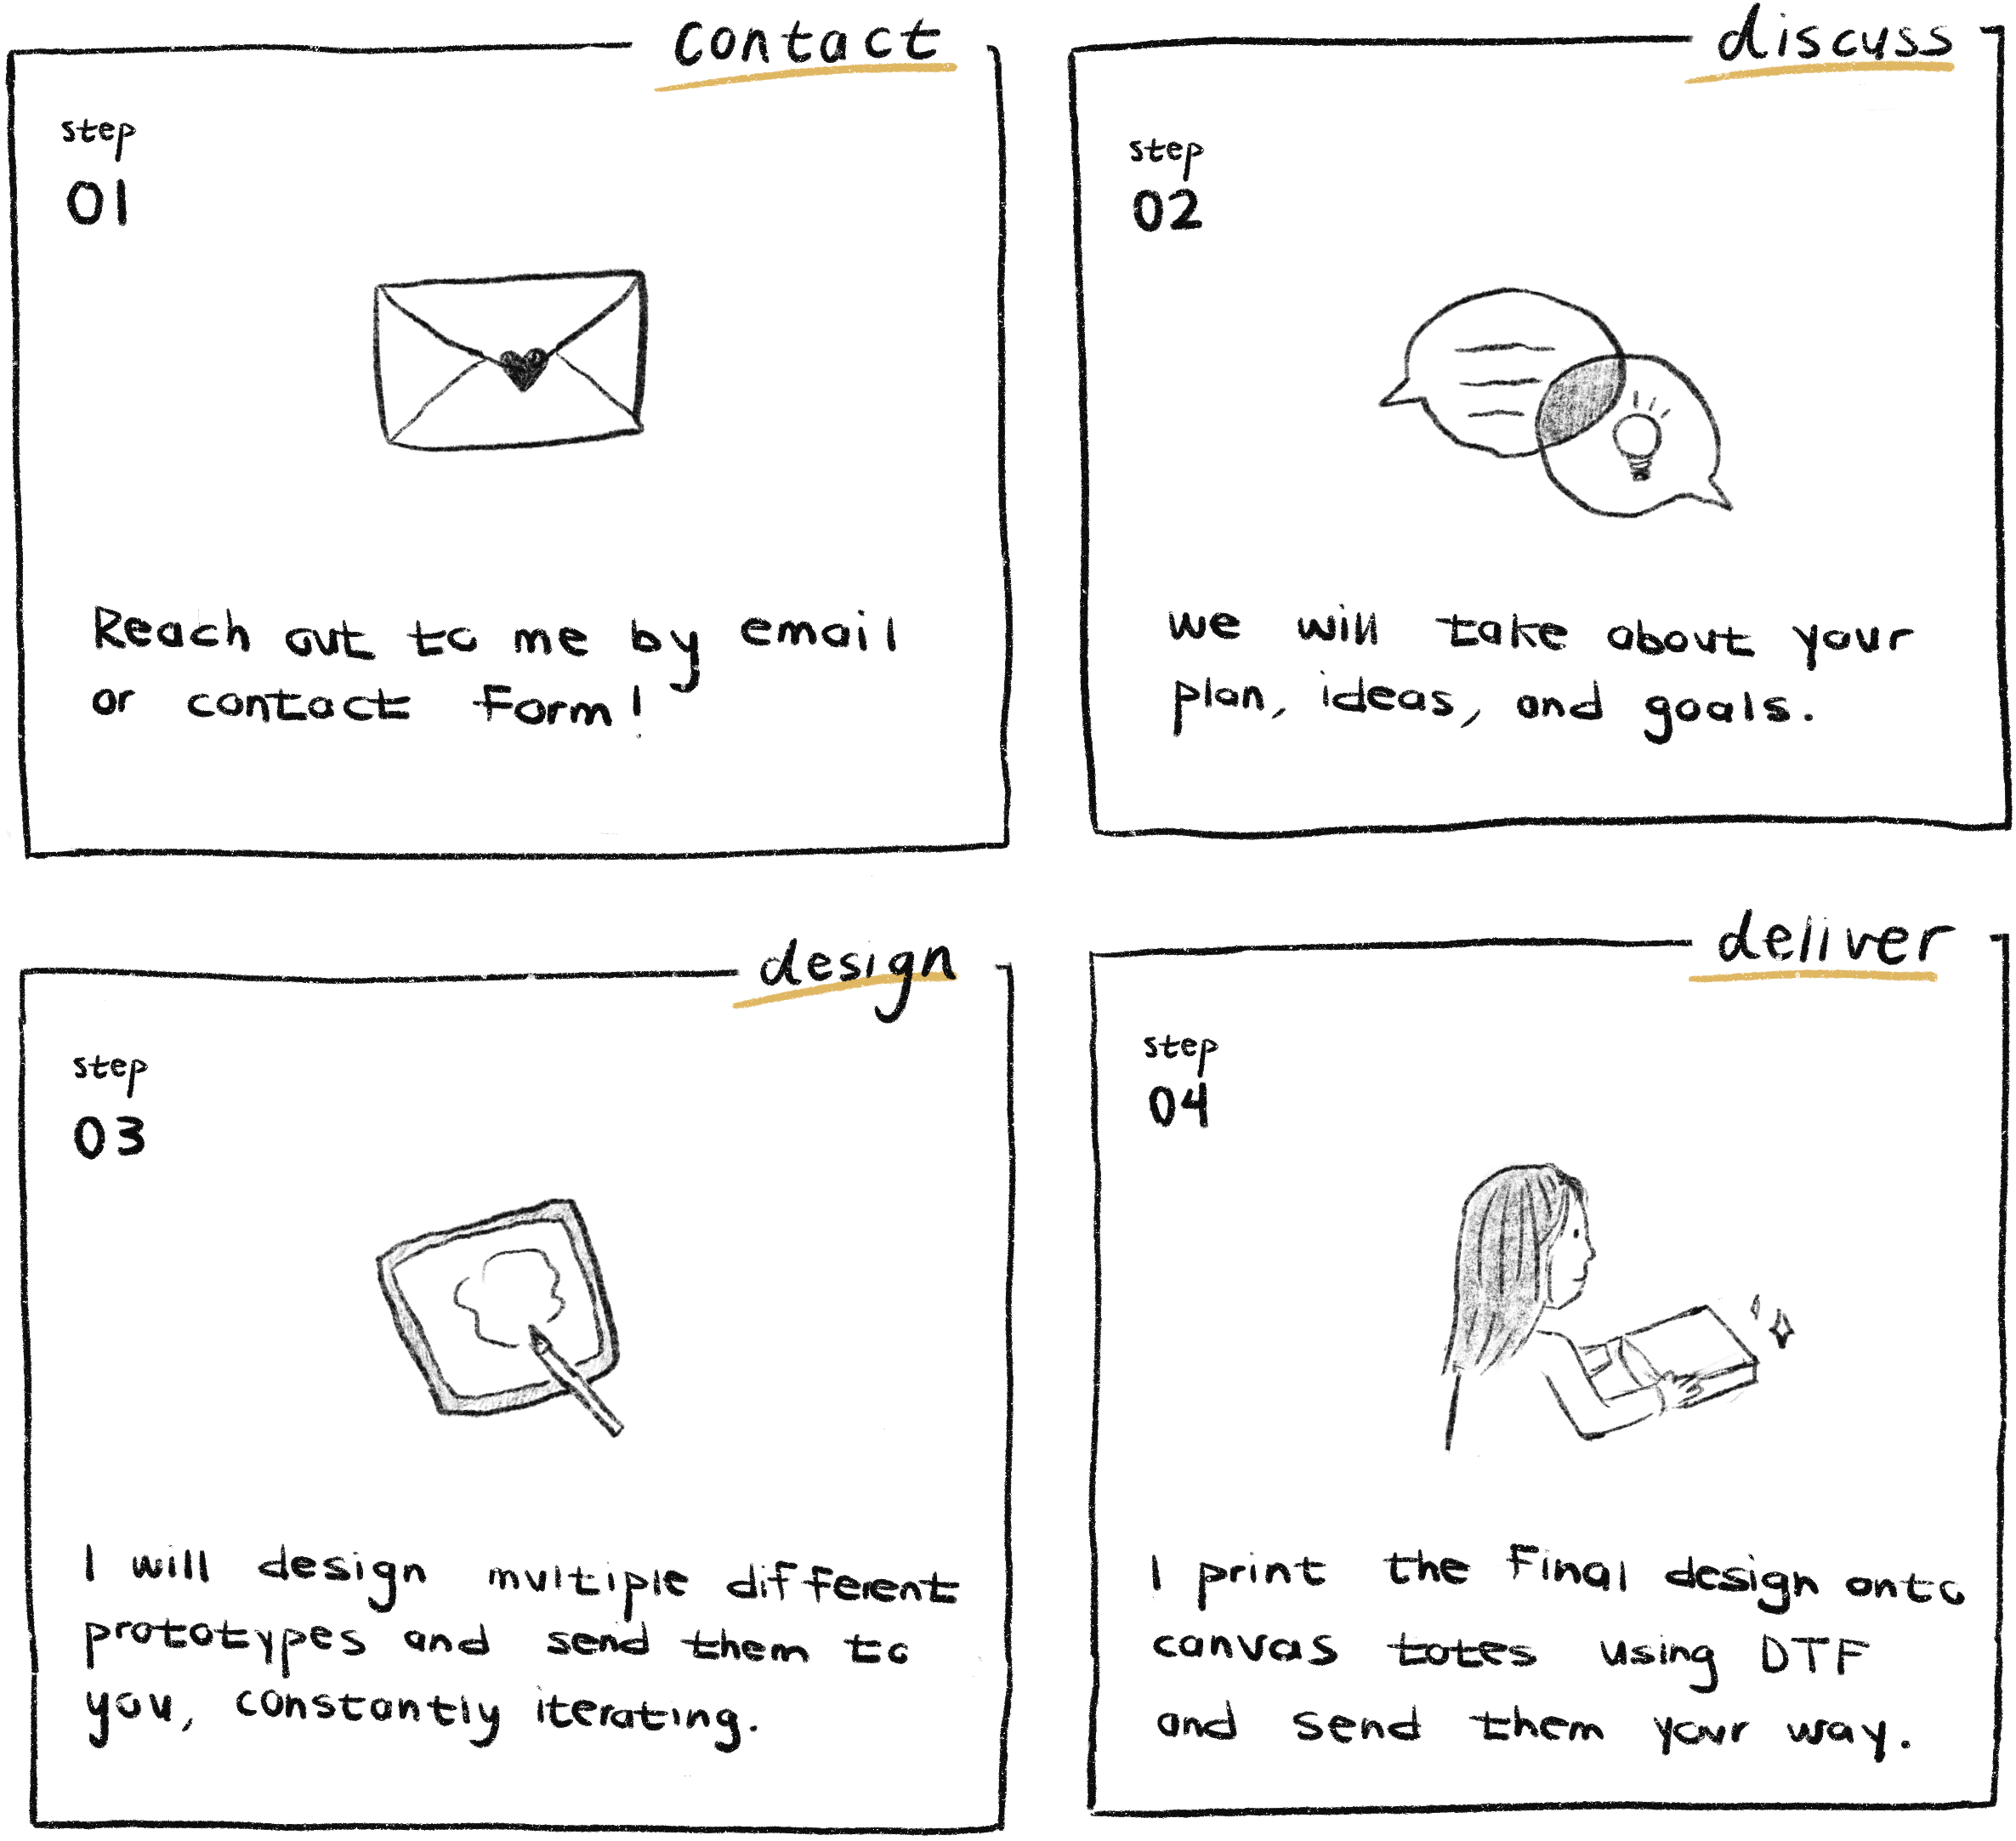 contact
step
01
Reach out to me by email
or contact form!
discuss
step
02
we will take about your
plan, ideas, and goals.
design
step
03
I will design multiple different
prototypes and send them to
you, constantly iterating.
deliver
step
04
I print the final design onto
canvas totes using DTF
and send them your way.